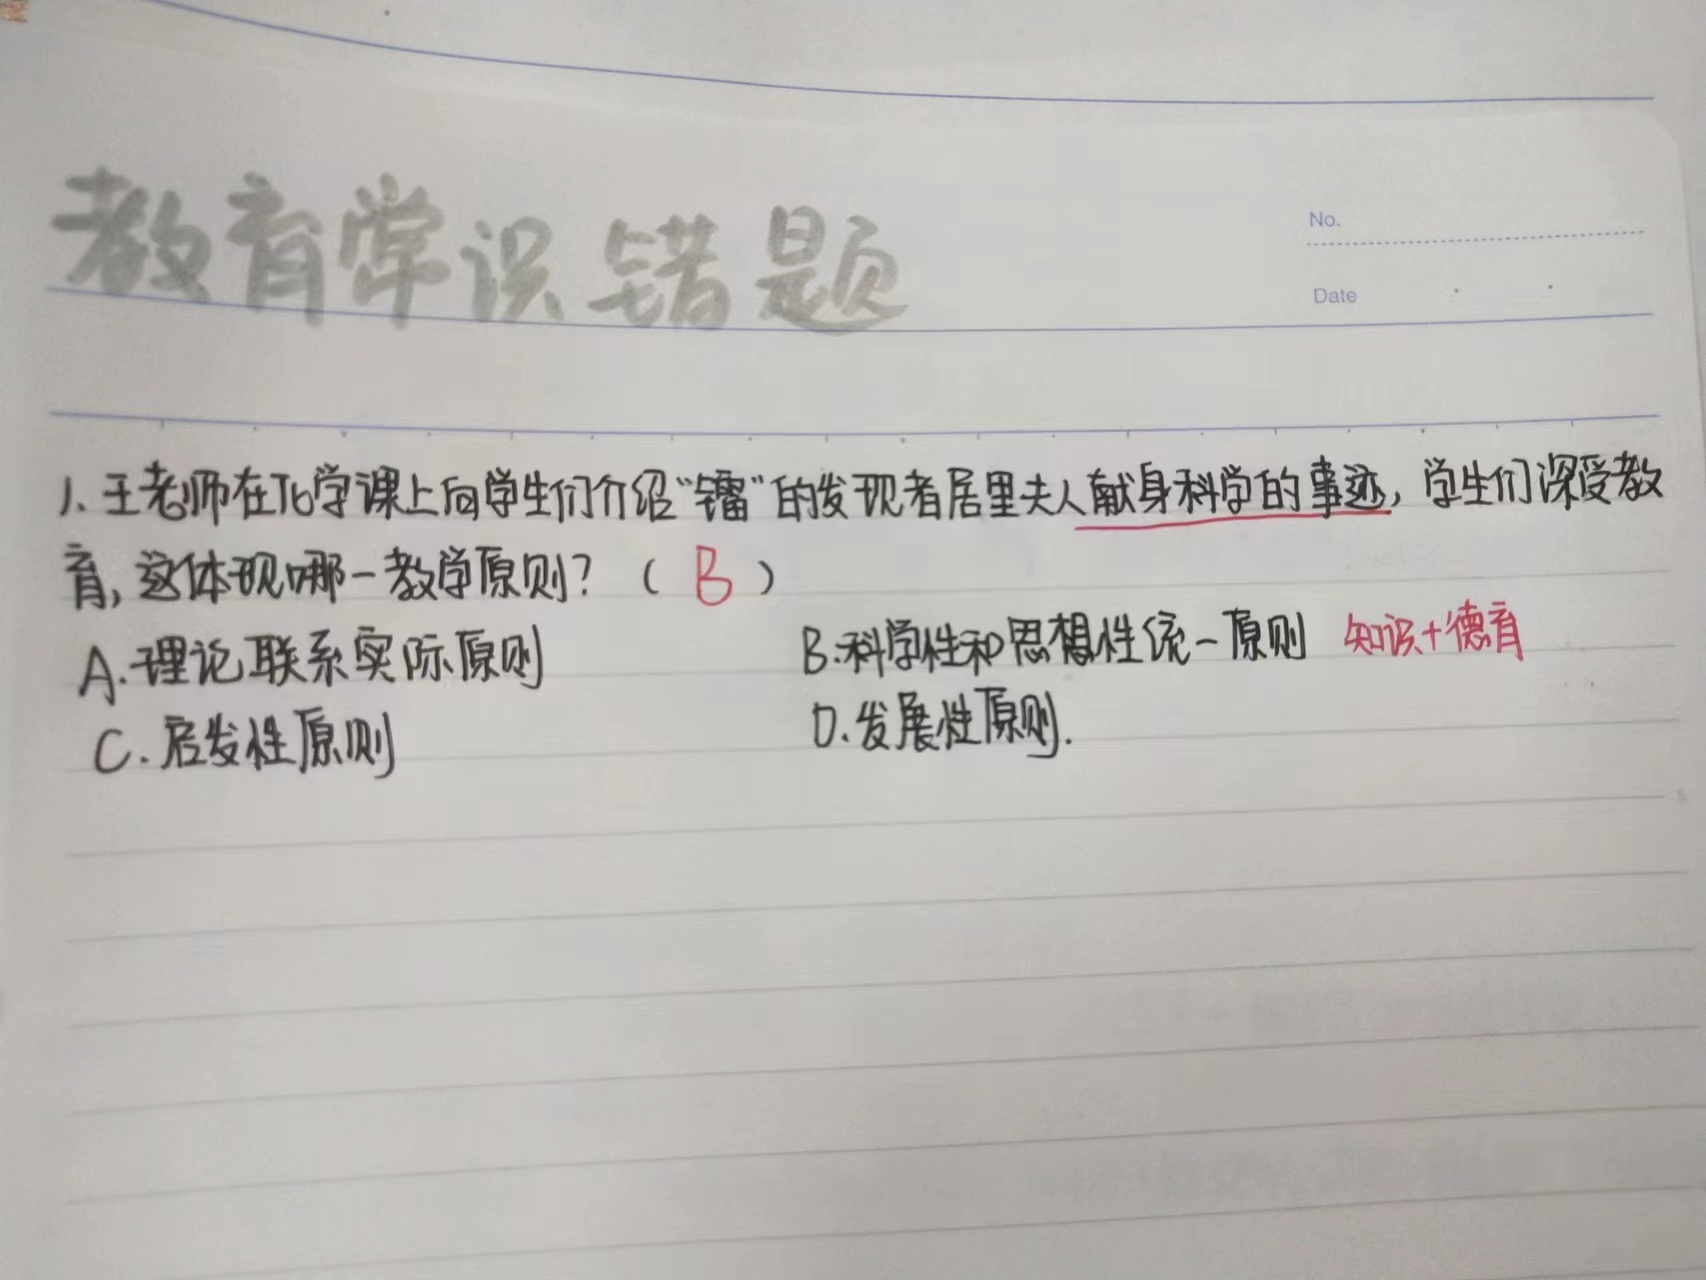 教育学识错题
No.
Date
1. 王老师在化学课上向学生们介绍“镭”的发现者居里夫人献身科学的事迹，学生们深受教
育，这体现哪一教学原则？（ B ）
A.理论联系实际原则 B.科学性和思想性统一原则 知识+德育
C.启发性原则 D.发展性原则.